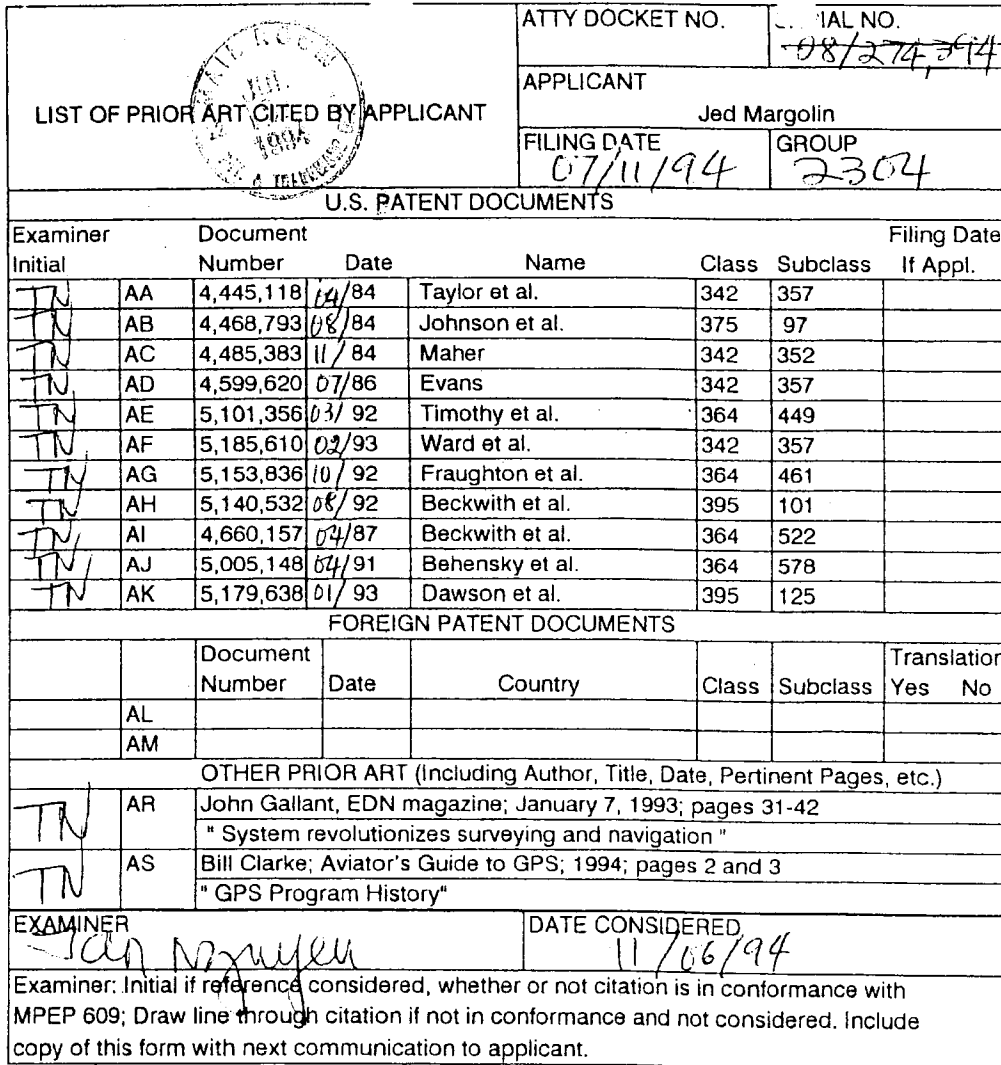 ATTY DOCKET NO. IAL NO.
08/274,394
LIST OF PRIOR ART CITED BY APPLICANT
APPLICANT
Jed Margolin
FILING DATE GROUP
07/11/94 2304
U.S. PATENT DOCUMENTS
Examiner Document Filing Date
Initial Number Date Name Class Subclass If Appl.
TN AA 4,445,118 04/84 Taylor et al. 342 357
TN AB 4,468,793 08/84 Johnson et al. 375 97
TN AC 4,485,383 11/84 Maher 342 352
TN AD 4,599,620 07/86 Evans 342 357
TN AE 5,101,356 03/92 Timothy et al. 364 449
TN AF 5,185,610 02/93 Ward et al. 342 357
TN AG 5,153,836 10/92 Fraughton et al. 364 461
TN AH 5,140,532 08/92 Beckwith et al. 395 101
TN AI 4,660,157 04/87 Beckwith et al. 364 522
TN AJ 5,005,148 04/91 Behensky et al. 364 578
TN AK 5,179,638 01/93 Dawson et al. 395 125
FOREIGN PATENT DOCUMENTS
Document Translation
Number Date Country Class Subclass Yes No
AL
AM
OTHER PRIOR ART (Including Author, Title, Date, Pertinent Pages, etc.)
TN AR John Gallant, EDN magazine; January 7, 1993; pages 31-42
" System revolutionizes surveying and navigation "
TN AS Bill Clarke; Aviator's Guide to GPS; 1994; pages 2 and 3
" GPS Program History"
EXAMINER DATE CONSIDERED
Tan Nguyen 11/06/94
Examiner: Initial if reference considered, whether or not citation is in conformance with
MPEP 609; Draw line through citation if not in conformance and not considered. Include
copy of this form with next communication to applicant.